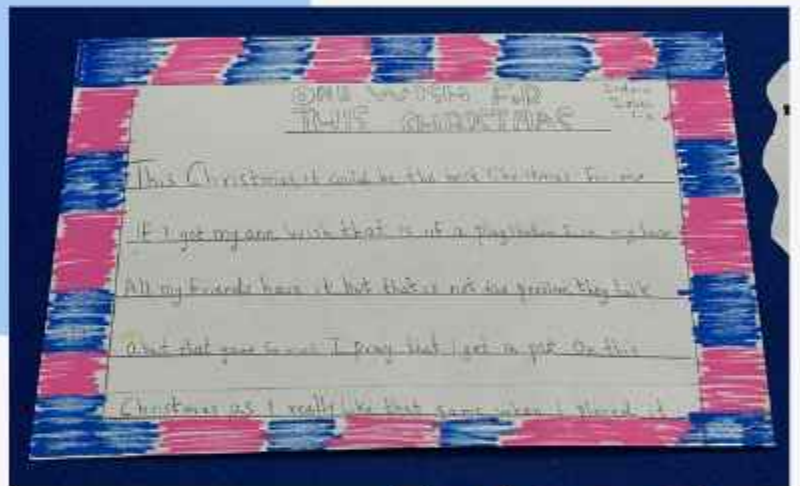 ONE WISH FOR
THIS CHRISTMAS
This Christmas it could be the best Christmas for me
If I got my one wish that is of a playstation
All my friends have it but that is not the they talk
that game so much I pray that I get a On this
Christmas as I really like that game when I played it